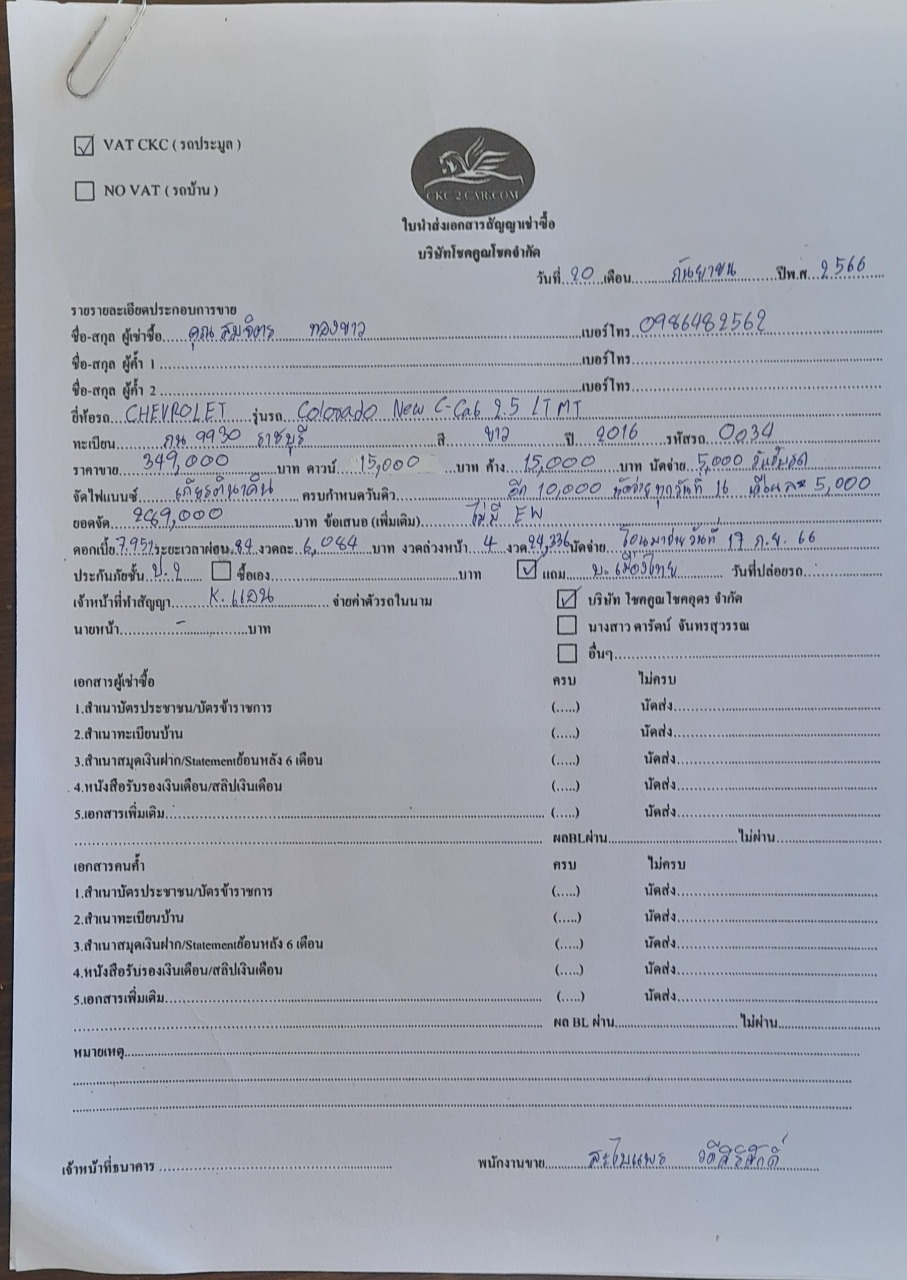 VAT CKC ( รถประมูล )
NO VAT ( รถบ้าน )
CKC 2 CAR.COM
ใบนำส่งเอกสารสัญญาเช่าซื้อ
บริษัทโชคคูณโชคจำกัด
วันที่ 20 เดือน กันยายน ปีพ.ศ. 2566
รายรายละเอียดประกอบการขาย
ชื่อ-สกุล ผู้เช่าซื้อ คุณ สมจิตร ทองขาว เบอร์โทร 0986482562
ชื่อ-สกุล ผู้ค้ำ 1 เบอร์โทร
ชื่อ-สกุล ผู้ค้ำ 2 เบอร์โทร
ยี่ห้อรถ CHEVROLET รุ่นรถ Colorado New C-Cab 2.5 LT MT
ทะเบียน 9930 ราชบุรี สี ขาว ปี 2016 รหัสรถ 0034
ราคาขาย 349,000 บาท ดาวน์ 15,000 บาท ค้าง 15,000 บาท นัดจ่าย 5,000 วันรับรถ
จัดไฟแนนซ์ เกียรตินาคิน ครบกำหนดวันคิว อีก 10,000 นัดจ่ายทุกวันที่ 16 เดือนละ 5,000
ยอดจัด 289,000 บาท ข้อเสนอ (เพิ่มเติม) ไม่มี EW
ดอกเบี้ย 7.95% ระยะเวลาผ่อน 84 งวดละ 6,084 บาท งวดล่วงหน้า 4 งวด 24,336 นัดจ่าย โอนมาวันที่ 17 ก.ย. 66
ประกันภัยชั้น ป.2 ซื้อเอง บาท แถม บ. เมืองไทย วันที่ปล่อยรถ
เจ้าหน้าที่ทำสัญญา K. แอน จ่ายค่าตัวรถในนาม บริษัท โชคคูณโชคอุดร จำกัด
นายหน้า - บาท นางสาว ดารัตน์ จันทรสุวรรณ
อื่นๆ
เอกสารผู้เช่าซื้อ ครบ ไม่ครบ
1.สำเนาบัตรประชาชน/บัตรข้าราชการ (.....) นัดส่ง
2.สำเนาทะเบียนบ้าน (.....) นัดส่ง
3.สำเนาสมุดเงินฝาก/Statementย้อนหลัง 6 เดือน (.....) นัดส่ง
4.หนังสือรับรองเงินเดือน/สลิปเงินเดือน (.....) นัดส่ง
5.เอกสารเพิ่มเติม (.....) นัดส่ง
ผลBLผ่าน ไม่ผ่าน
เอกสารคนค้ำ ครบ ไม่ครบ
1.สำเนาบัตรประชาชน/บัตรข้าราชการ (.....) นัดส่ง
2.สำเนาทะเบียนบ้าน (.....) นัดส่ง
3.สำเนาสมุดเงินฝาก/Statementย้อนหลัง 6 เดือน (.....) นัดส่ง
4.หนังสือรับรองเงินเดือน/สลิปเงินเดือน (.....) นัดส่ง
5.เอกสารเพิ่มเติม (.....) นัดส่ง
ผล BL ผ่าน ไม่ผ่าน
หมายเหตุ
เจ้าหน้าที่ธนาคาร พนักงานขาย